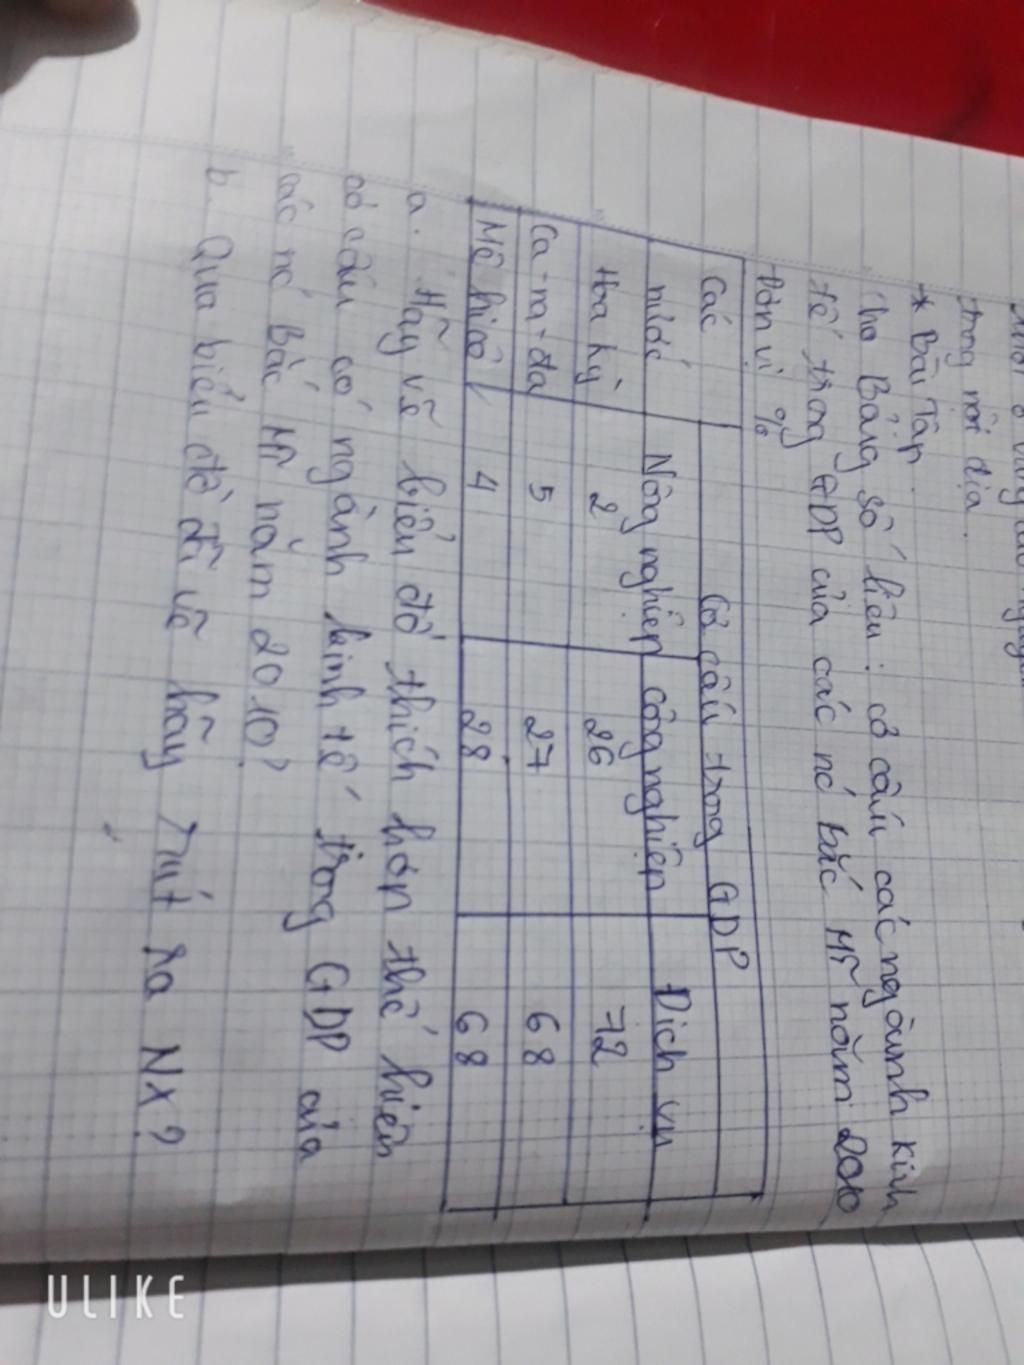 trong nội địa.
* Bài Tập.
Cho Bảng số liệu: cơ cấu các ngành kinh
tế trong GDP của các nc Bắc Mĩ năm 2010
Đơn vị %
Các Cơ cấu trong GDP
nước Nông nghiệp công nghiệp Dịch vụ
Hoa kỳ 2 26 72
Ca-na-đa 5 27 68
Mê hicô 4 28 68
a. Hãy vẽ biểu đồ thích hợp thể hiện
cơ cấu có ngành kinh tế trong GDP của
các nc Bắc Mĩ năm 2010?
b. Qua biểu đồ đã vẽ hãy rút ra NX?
ULIKE